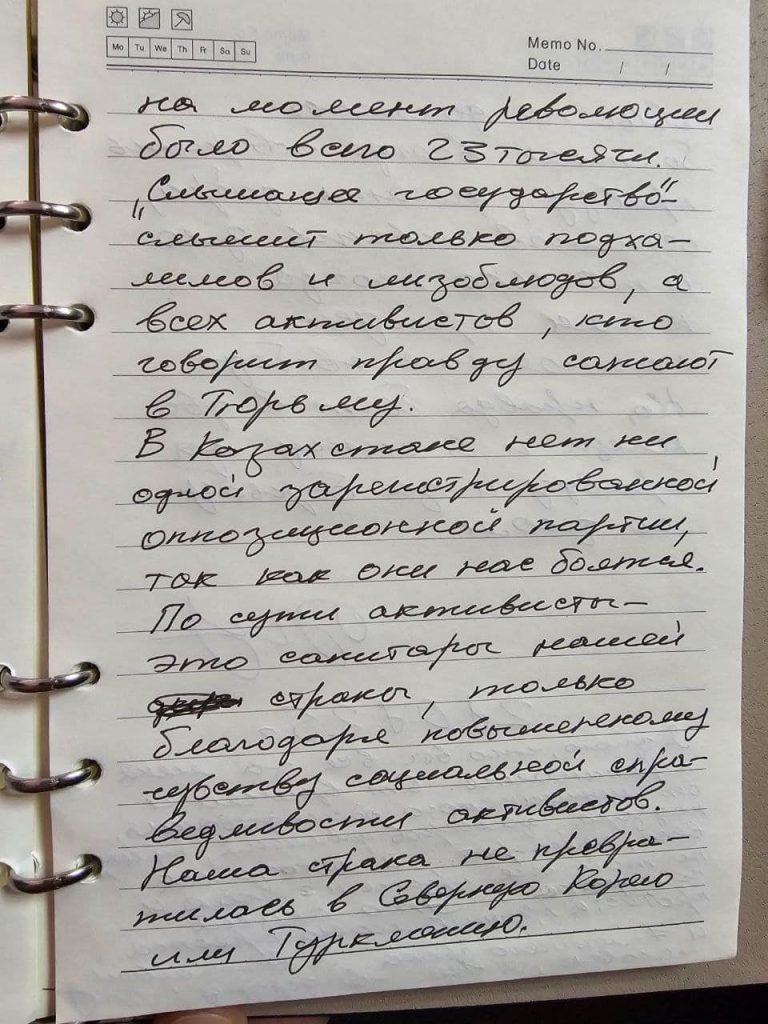 Mo Tu We Th Fr Sa Su
Memo No.
Date / /
на момент революции
было всего 23 тысячи.
"Слышащее государство"-
слышит только подха-
лимов и лизоблюдов, а
всех активистов, кто
говорит правду сажают
в Тюрьму.
В Казахстане нет ни
одной зарегистрированной
оппозиционной партии,
так как они нас боятся.
По сути активисты-
это санитары нашей
страны, только
благодаря повышенному
чувству социальной спра-
ведливости активистов.
Наша страна не превра-
тилась в Северную Корею
или Туркмению.